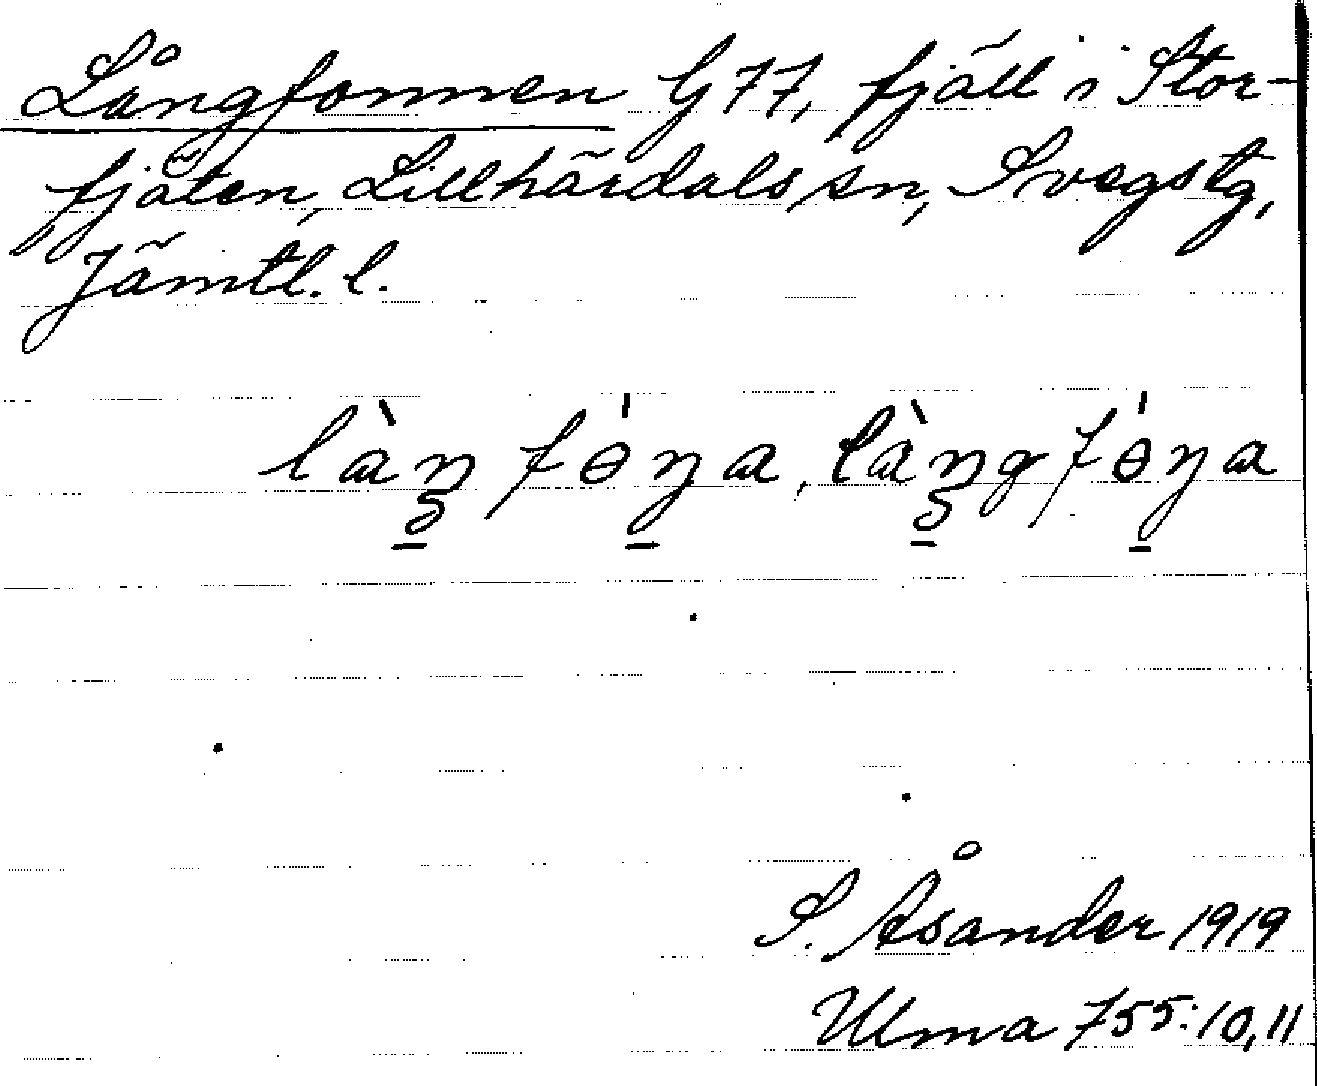 Långfonnen G 77, fjäll i Stor-
fjäten, Lillhärdals sn, Svegs tg,
Jämtl. l.
S. Åsander 1919
Ulma 755:10,11